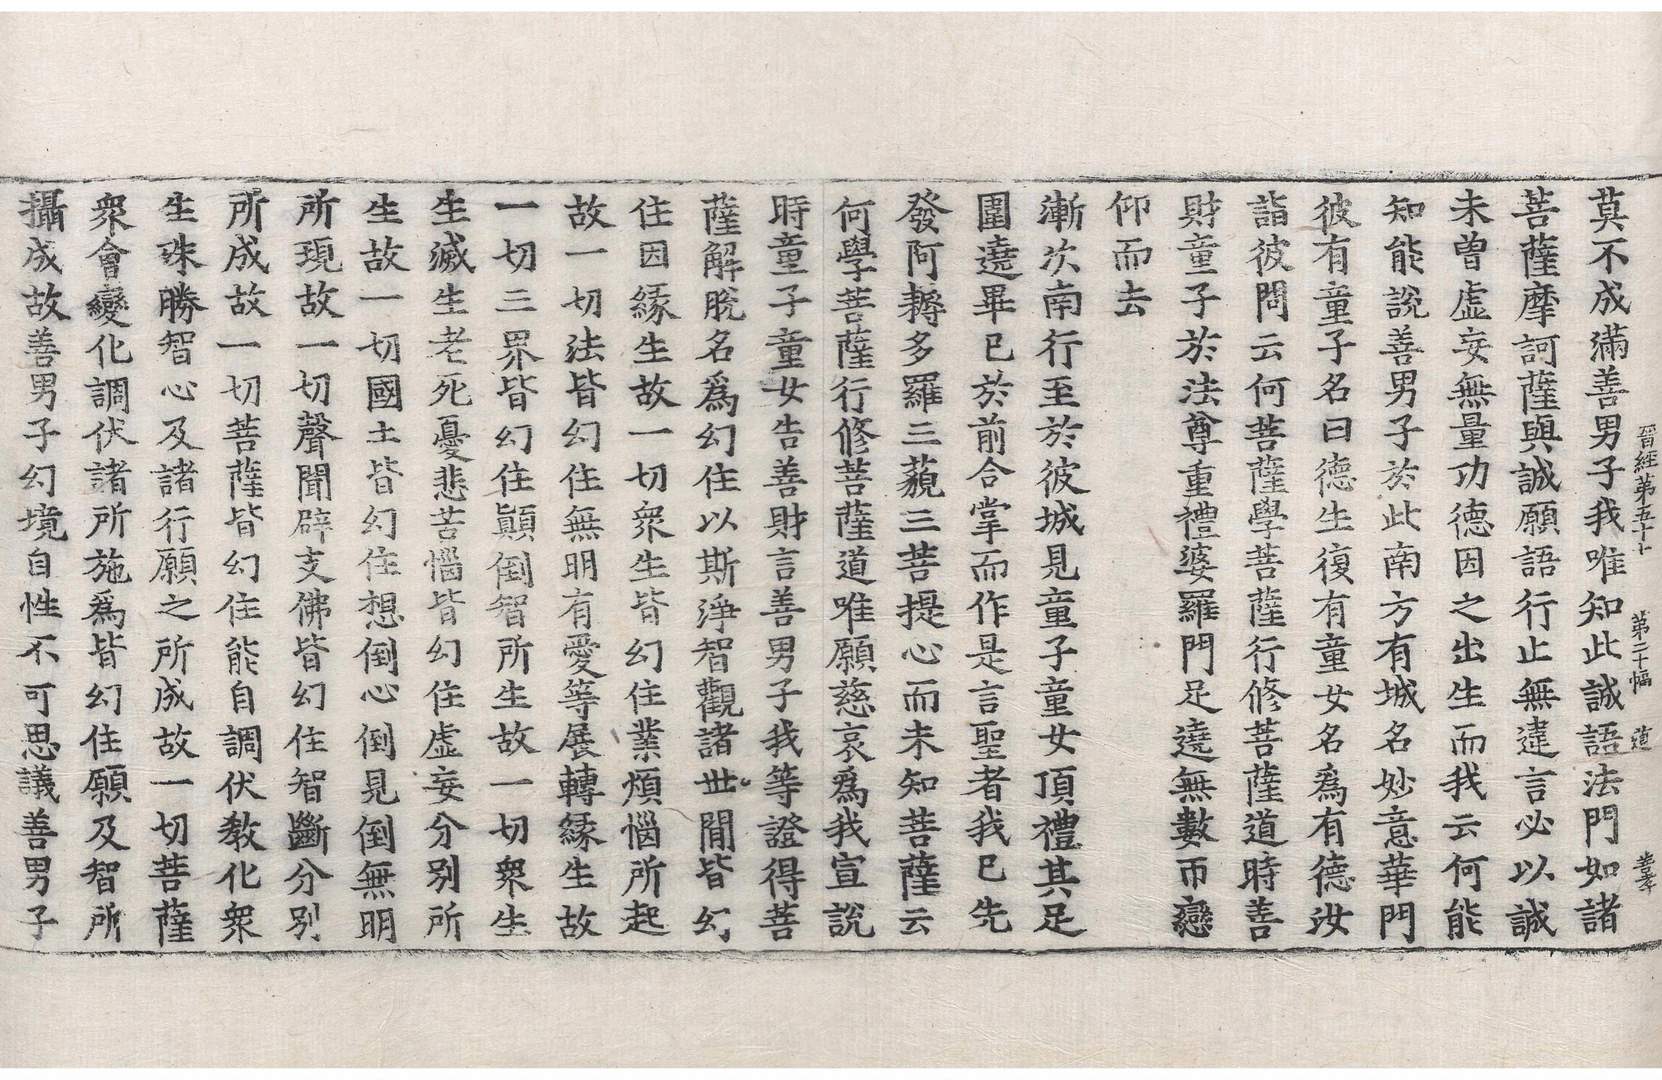 晉經第五十七 第二十幅 道 孝孝
莫不成滿善男子我唯知此誠語法門如諸
菩薩摩訶薩與誠願語行止無違言必以誠
未曾虛妄無量功德因之出生而我云何能
知能說善男子於此南方有城名妙意華門
彼有童子名曰德生復有童女名爲有德汝
詣彼問云何菩薩學菩薩行修菩薩道時善
財童子於法尊重禮婆羅門足遶無數帀戀
仰而去
漸次南行至於彼城見童子童女頂禮其足
圍遶畢已於前合掌而作是言聖者我已先
發阿耨多羅三藐三菩提心而未知菩薩云
何學菩薩行修菩薩道唯願慈哀爲我宣說
時童子童女告善財言善男子我等證得菩
薩解脫名爲幻住以斯淨智觀諸世間皆幻
住因緣生故一切衆生皆幻住業煩惱所起
故一切法皆幻住無明有愛等展轉緣生故
一切三界皆幻住顚倒智所生故一切衆生
生滅生老死憂悲苦惱皆幻住虛妄分別所
生故一切國土皆幻住想倒心倒見倒無明
所現故一切聲聞辟支佛皆幻住智斷分別
所成故一切菩薩皆幻住能自調伏教化衆
生殊勝智心及諸行願之所成故一切菩薩
衆會變化調伏諸所施爲皆幻住願及智所
攝成故善男子幻境自性不可思議善男子